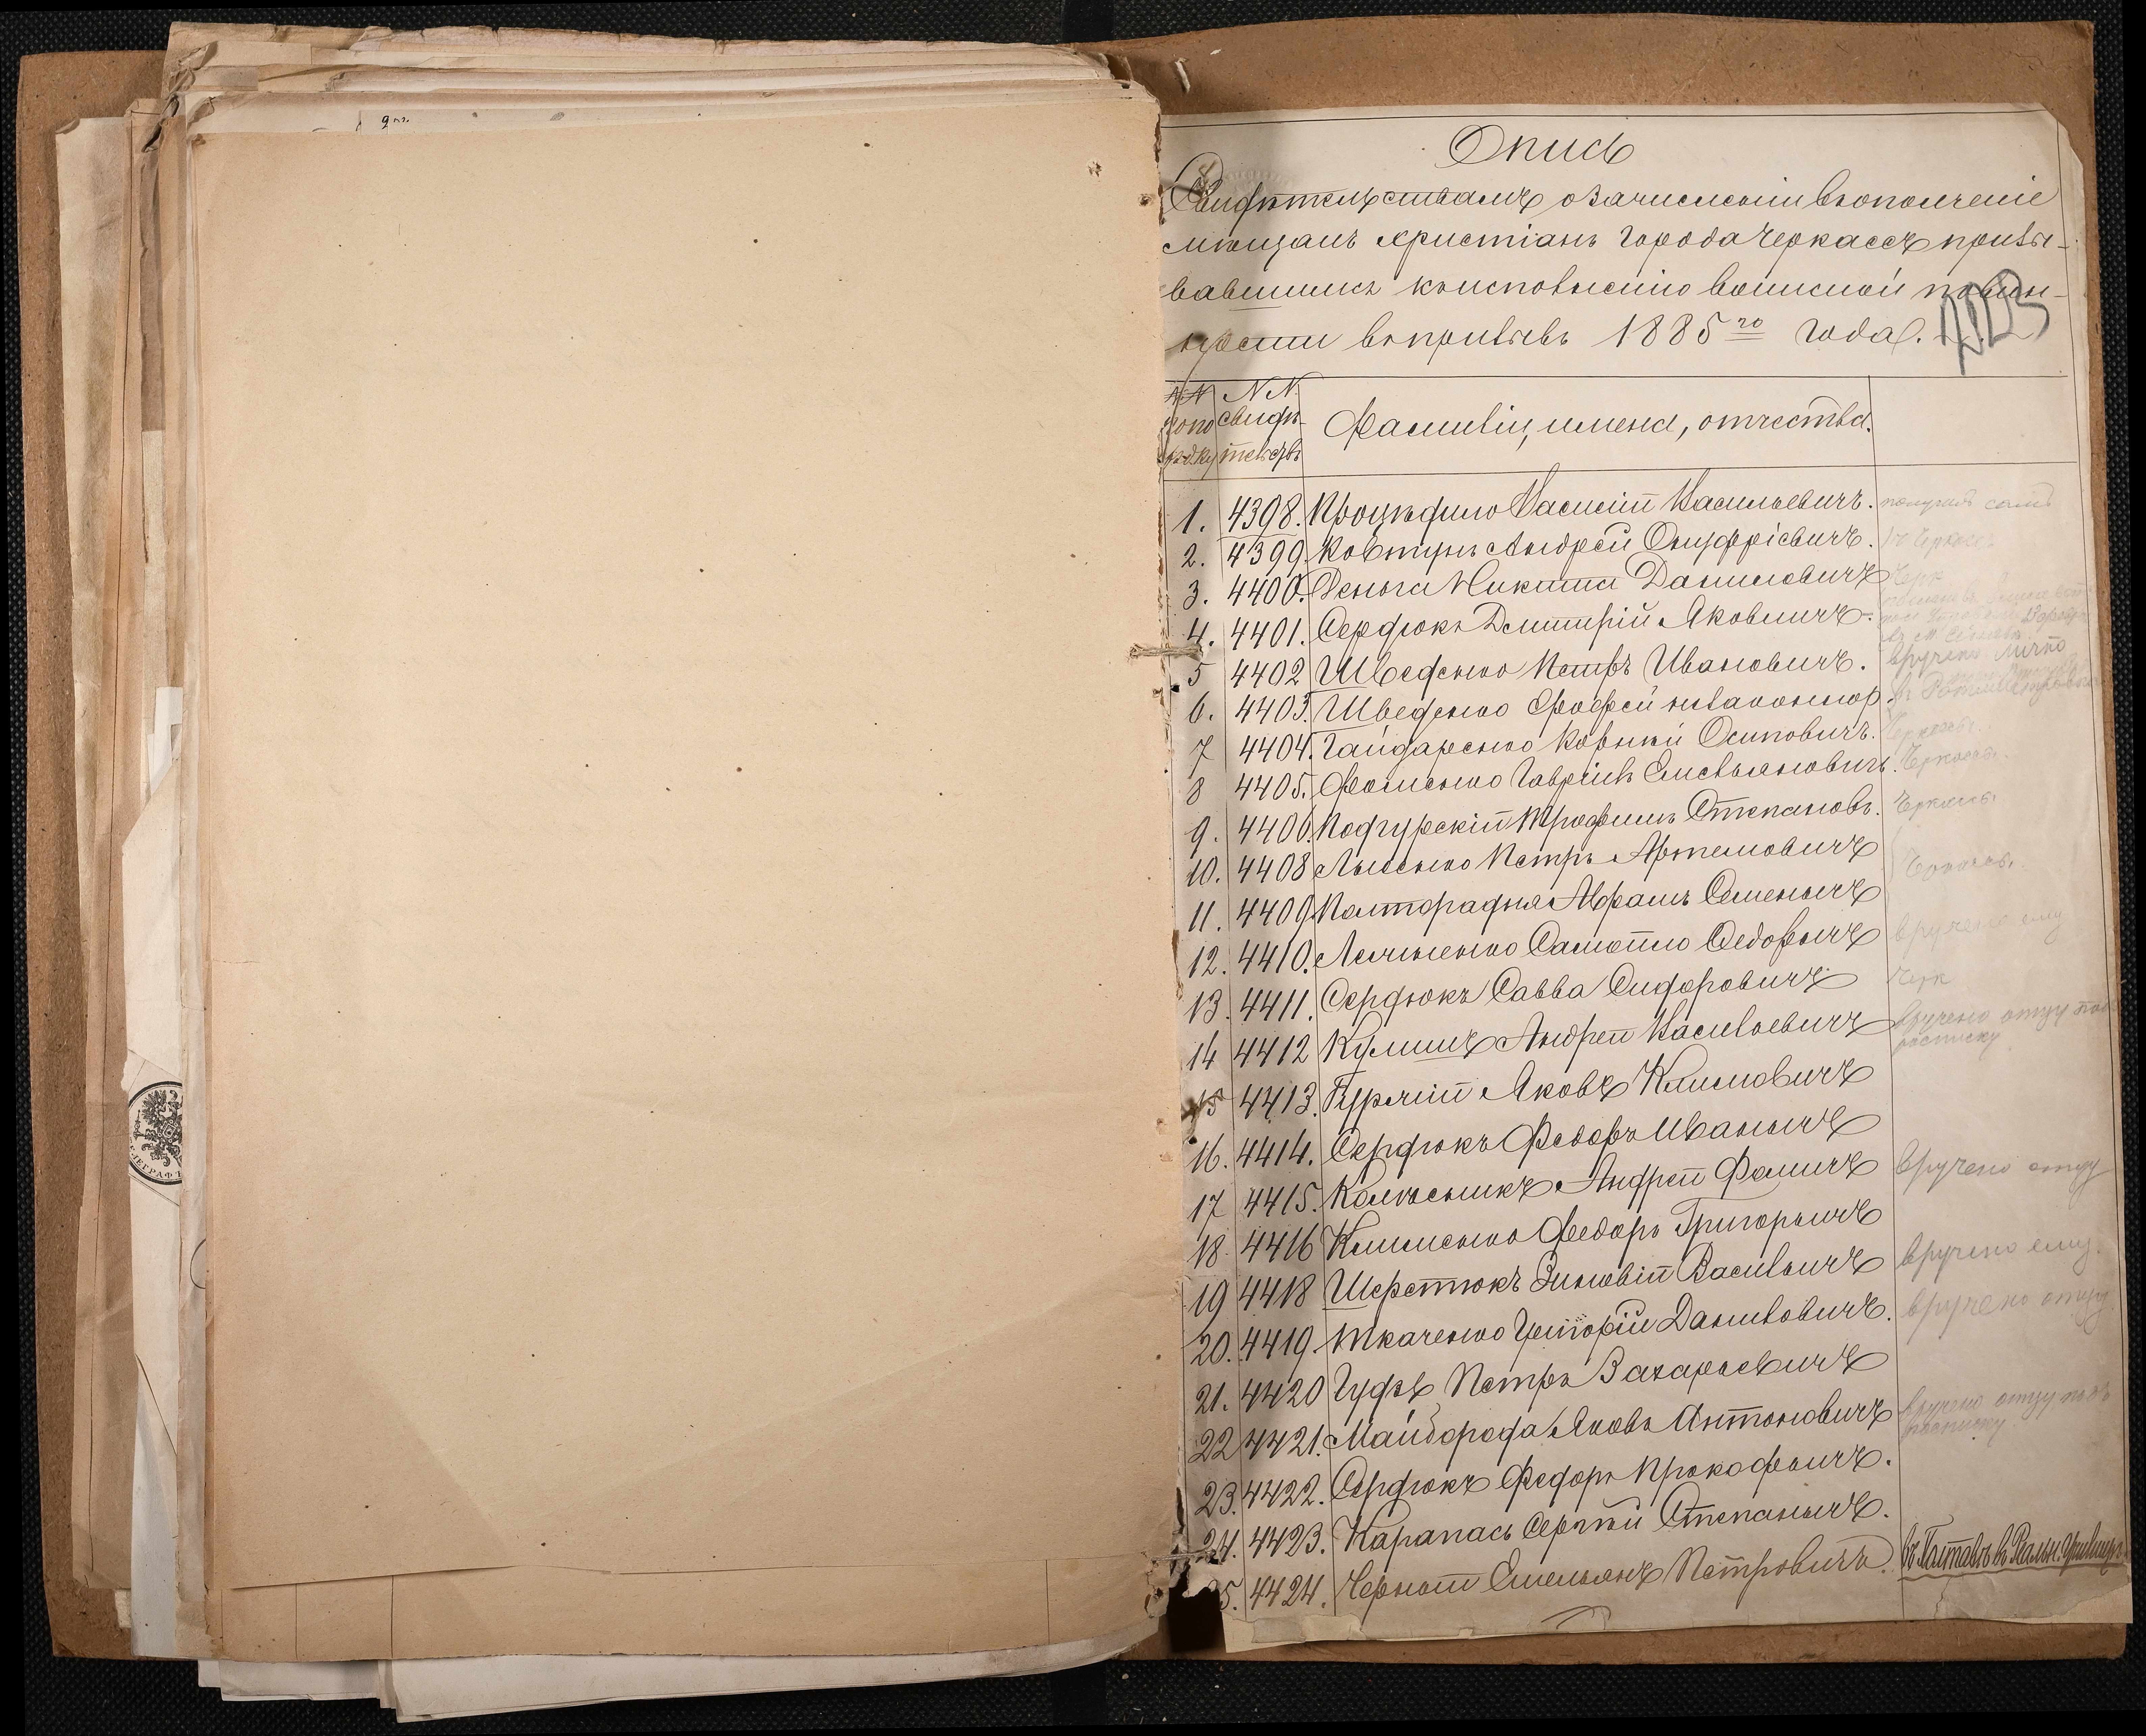 Опись
Свидѣтельствамъ о зачисленіи въ ополченіе
мѣщанъ христіанъ города Черкассъ призы-
вавшимся къ исполненію воинской повин-
ности въ призывъ 1885 го года.
NN NN
по по свидѣ- Фамиліи, имена, отчества.
рядку тельствъ
1. 4398. Проциденко Василій Васильевичъ. получилъ самъ
2. 4399. Ковтунъ Андрей Онуфріевичъ.
3. 4400. Деньга Никита Даниловичъ Черк
4. 4401. Сердюкъ Дмитрій Яковличъ.
5 4402 Шведенко Петръ Ивановичъ. вручено лично
6. 4403. Шведенко Андрей незаконнор.
7 4404. Гайдаренко Корнѣй Осиповичъ. Черкассы.
8 4405. Фоменко Гавріилъ Емельяновичъ. Черкассы.
9. 4406. Подгурскій Трофимъ Степановъ. Черкассы
10. 4408 Лысенко Петръ Артемовичъ Черкассы.
11. 4409 Полторадня Абрамъ Семенычъ
12. 4410. Самойло Федорычъ вручено ему
13. 4411. Сердюкъ Савва Сидоровичъ Черк
14 4412 Кулишъ Андрей Васильевичъ вручено отцу подъ
росписку
15 4413. Бурлій Яковъ Климовичъ
16. 4414. Сердюкъ Федоръ Иванычъ
17 4415. Колѣсникъ Андрей Фомичъ вручено отцу
18. 4416 Клименко Федоръ Григорьичъ
19 4418 Шерстюкъ Зиновій Васильичъ вручено ему.
20. 4419. Ткаченко Григорій Даниловичъ. вручено отцу
21. 4420 Гудзь Петръ Захарьевичъ
22 4421. Майборода Яковъ Антоновичъ вручено отцу подъ
росписку.
23. 4422. Сердюкъ Федоръ Прокофьичъ.
24. 4423. Карапась Сергѣй Степанычъ.
25. 4424. Черный Емельянъ Петровичъ. въ Полтавѣ въ Реальн. Училищѣ